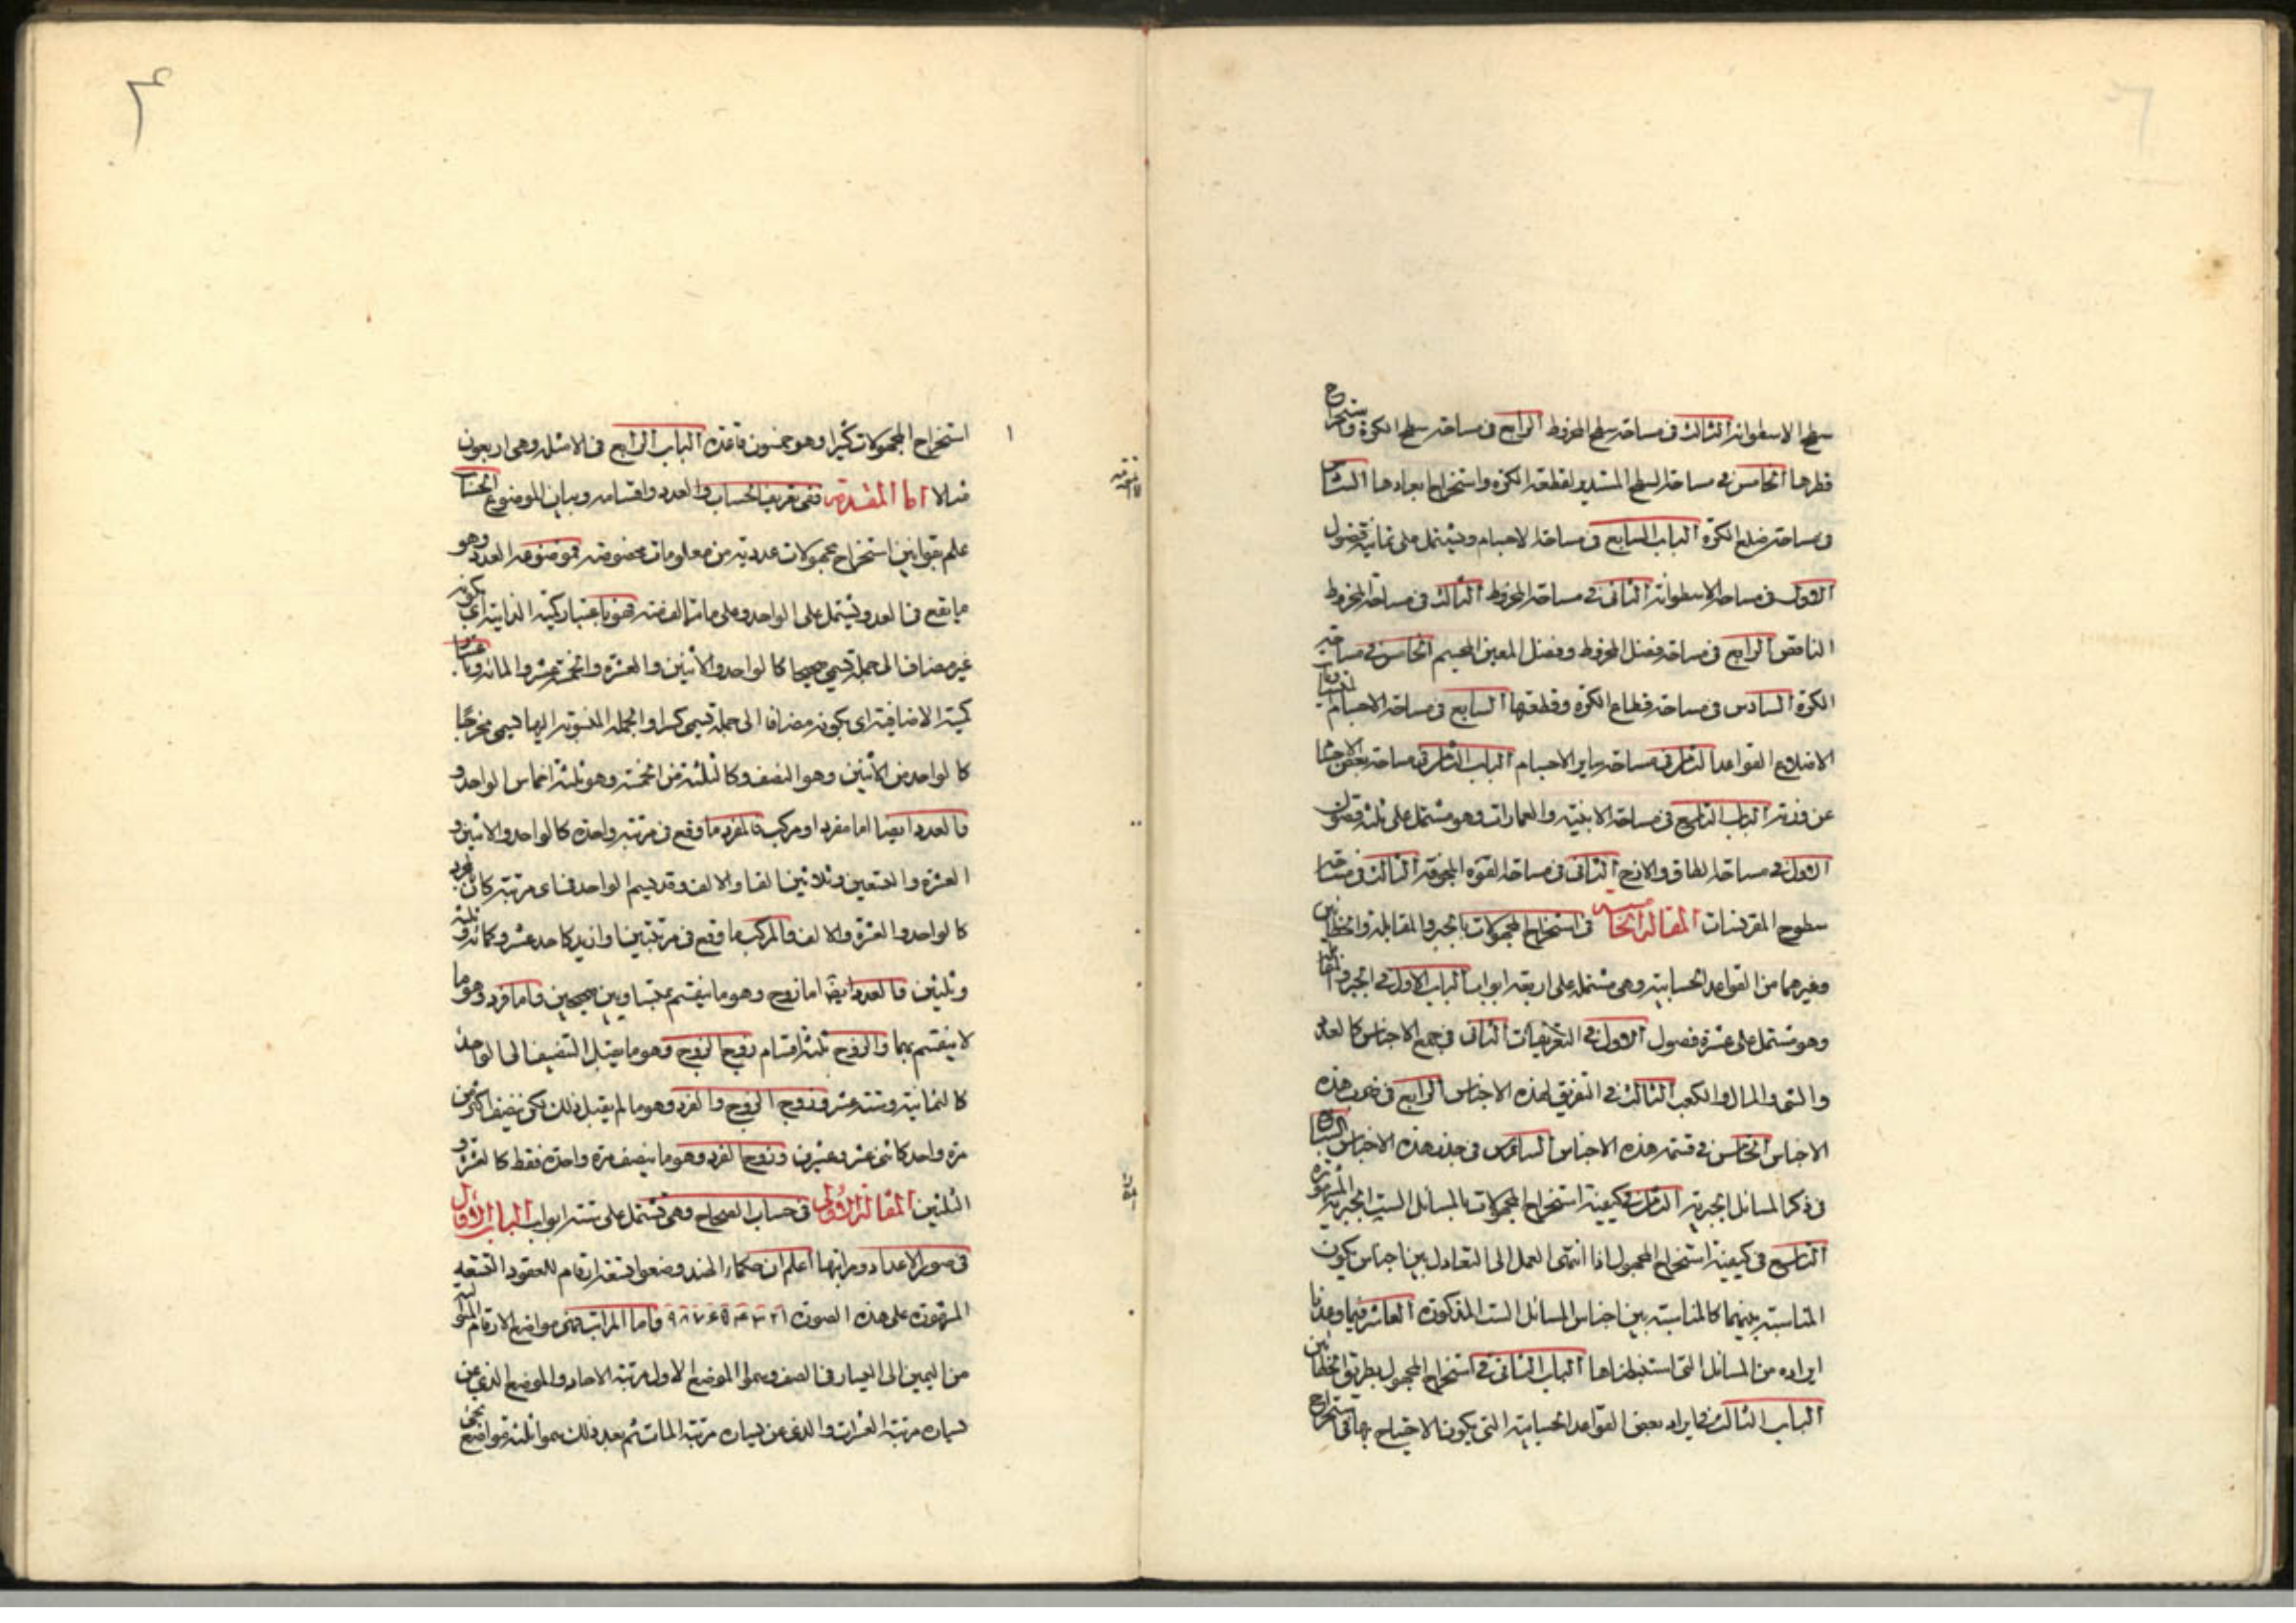 سطح الاسطوانة الثالث فى مساحة سطح المخروط الرابع فى مساحة سطح الكرة واستخراج
قطرها الخامس فى مساحة السطح المستدير لقطعة الكرة واستخراج ابعادها السادس
فى مساحة ضلع الكرة الباب السابع فى مساحة الاجسام ويشتمل على ثمانية فصول
الاول فى مساحة الاسطوانة الثانى فى مساحة المخروط الثالث فى مساحة المخروط
الناقص الرابع فى مساحة فضل المخروط وفضل المعين المجسم الخامس فى مساحة
الكرة السادس فى مساحة قطاع الكرة وقطعتها السابع فى مساحة الاجسام المتساوية
الاضلاع القواعد الثامن فى مساحة ساير الاجسام الباب الثامن فى مساحة بعض الاجسام
عن وزنه الباب التاسع فى مساحة الابنية والعمارات وهو مشتمل على ثلثة فصول
الاول فى مساحة الطاق والازج الثانى فى مساحة القبة المجوفة الثالث فى مساحة
سطوح المقرنسات المقالة الخامسة فى استخراج المجهولات بالجبر والمقابلة والخطاين
وغيرهما من القواعد الحسابية وهى مشتملة على اربعة ابواب الباب الاول فى الجبر والمقابلة
وهو مشتمل على عشرة فصول الاول فى التعريفات الثانى فى جمع الاجناس كالعدد
والشئ والمال والكعب الثالث فى التفريق لهذه الاجناس الرابع فى ضرب هذه
الاجناس الخامس فى قسمة هذه الاجناس السادس فى جذر هذه الاجناس السابع
فى ذكر المسائل الجبرية الثامن فى كيفية استخراج المجهولات بالمسائل الست الجبرية المشهورة
التاسع فى كيفية استخراج المجهول اذا انتهى العمل الى التعادل بين اجناس يكون
المناسبة بينهما كالمناسبة بين اجناس المسائل الست المذكورة العاشر فيما وعدنا
ايراده من المسائل التى استنبطناها الباب الثانى فى استخراج المجهول بطريق الخطاين
الباب الثالث فى ايراد بعض القواعد الحسابية التى يكون الاحتياج بها فى استخراج
استخراج المجهولات كثيرا وهو خمسون قاعدة الباب الرابع فى الامثلة وهى اربعون
مثالا اما المقدمة ففى تعريف الحساب والعدد واقسامه وبيان الموضوع الحساب
علم بقوانين استخراج مجهولات عددية من معلومات مخصوصة فموضوعه العدد وهو
ما يقع فى العد ويشتمل على الواحد وعلى ما تالف منه فهو باعتبار كميته الذاتية اى بكونه
غير مضاف الى جملة يسمى صحيحا كالواحد والاثنين والعشرة والخمسة عشر والمائة وباعتبار
كميته الاضافية اى بكونه مضافا الى جملة يسمى كسرا والجملة المنسوبة اليها يسمى مخرجا
كالواحد من الاثنين وهو النصف وكالثلثة من الخمسة وهو ثلثة اخماس الواحد و
فالعدد ايضا اما مفرد او مركب فالمفرد ما وقع فى مرتبة واحدة كالواحد والاثنين و
العشرة والتسعين وثلاثين الفا والالف وقد يسم الواحد فى اى مرتبة كان
كالواحد والعشرة والالف والمركب ما وقع فى مرتبتين او ازيد كاحد عشر وكمائة وثلثة
وثلثين فالعدد ايضا اما زوج وهو ما ينقسم بمتساويين صحيحين واما فرد وهو ما
لا ينقسم بهما والزوج ثلثة اقسام زوج الزوج وهو ما يقبل التنصيف الى الواحد
كالثمانية وستة عشر وزوج الزوج والفرد وهو ما لم يقبل ذلك لكن ينصف اكثر من
مرة واحدة كاثنى عشر وعشرين وزوج الفرد وهو ما ينصف مرة واحدة فقط كالعشرة و
الثلثين المقالة الاولى فى حساب الصحاح وهى تشتمل على ستة ابواب الباب الاول
فى صور الاعداد ومراتبها اعلم ان حكماء الهند وضعوا تسعة ارقام للعقود التسعة
المشهورة على هذه الصورة ١ ٢ ٣ ۴ ۵ ۶ ٧ ٨ ٩ واما المراتب فهى مواضع الارقام المتوالية
من اليمين الى اليسار فى الصف وسموا الموضع الاول مرتبة الاحاد والموضع الذى عن
يساره مرتبة العشرات والذى عن يساره مرتبة المات ثم بعد ذلك سموا ثلثة مواضع